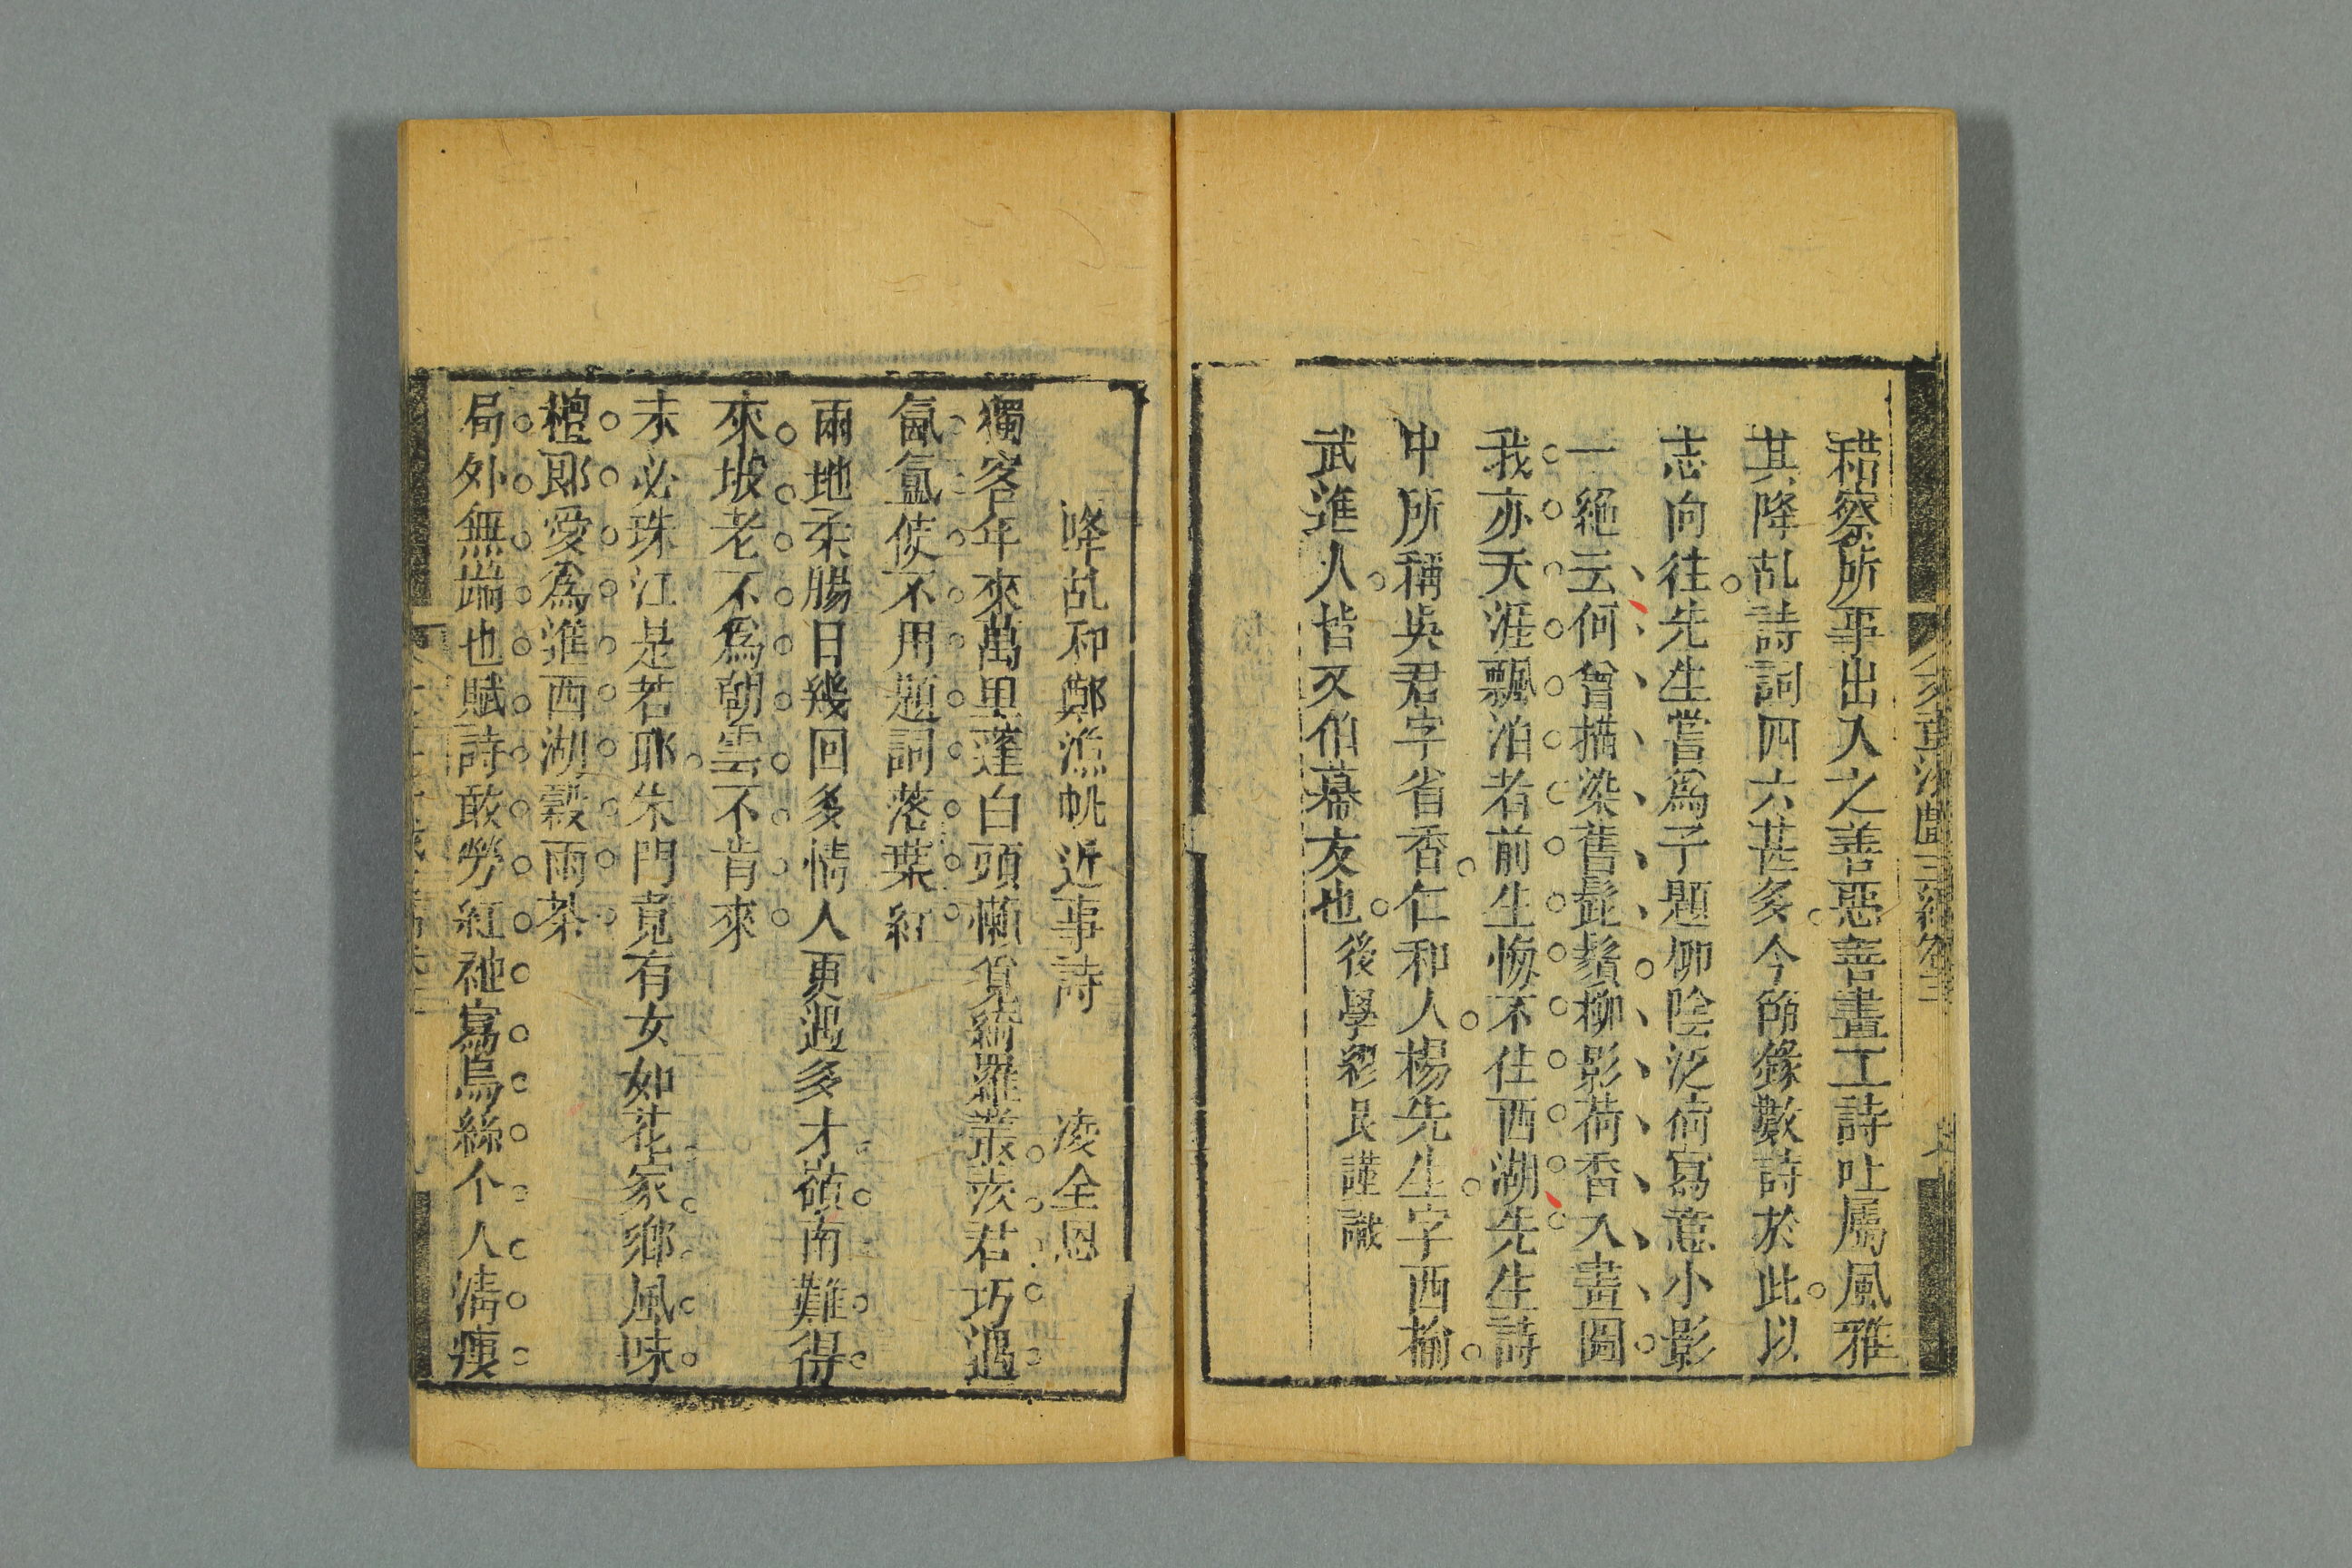 稽察所事出入之善惡善畫工詩吐屬風雅
其降乩詩詞四六甚多今節錄數詩於此以
志向往先生嘗為子題柳陰泛荷寫意小影
一絕云何曾描染舊髭鬚柳影荷香入畫圖
我亦天涯飄泊者前生悔不住西湖先生詩
中所稱吳君字省香仁和人楊先生字西榆
武進人皆文伯幕友也後學繆艮謹識
降乩和鄭漁帆近事詩　凌全恩
獨客年來萬里蓬白頭懶覓綺羅叢羨君巧遇
氤氳使不用題詞落葉紅
兩地柔腸日幾回多情人更遇多才嶺南難得
來坡老不為朝雲不肯來
未必珠江是若耶朱門竟有女如花家鄉風味
檀郎愛為進西湖穀雨茶
局外無端也賦詩敢勞紅袖寫烏絲个人清瘦